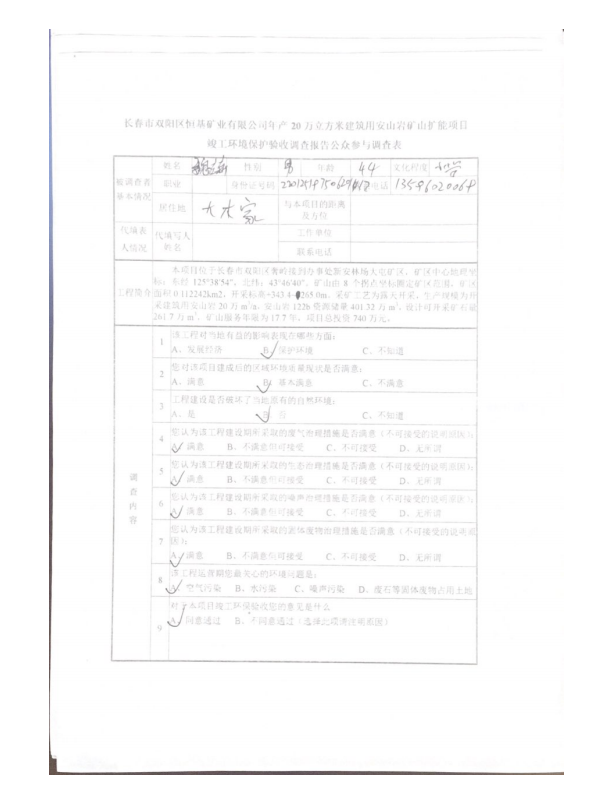 长春市双阳区恒基矿业有限公司年产 20 万立方米建筑用安山岩矿山扩能项目
竣工环境保护验收调查报告公众参与调查表
被调查者基本情况
姓名 性别 男 年龄 44 文化程度
职业 身份证号码 电话
居住地 大大家 与本项目的距离及方位
代填表人情况
代填写人姓名 工作单位
联系电话
工程简介
本项目位于长春市双阳区奢岭接到办事处新安林场大屯矿区，矿区中心地理坐
标：东经 125°38′54″，北纬：43°46′40″。矿山由 8 个拐点坐标圈定矿区范围，矿区
面积 0.112242km2，开采标高+343.4- 265.0m。采矿工艺为露天开采，生产规模为开
采建筑用安山岩 20 万 m³/a，安山岩 122b 资源储量 401.32 万 m³，设计可开采矿石量
261.7 万 m³，矿山服务年限为 17.7 年，项目总投资 740 万元。
调查内容
1 该工程对当地有益的影响表现在哪些方面：
A、发展经济 B、保护环境 C、不知道
2 您对该项目建成后的区域环境质量现状是否满意：
A、满意 B、基本满意 C、不满意
3 工程建设是否破坏了当地原有的自然环境：
A、是 B、否 C、不知道
4 您认为该工程建设期所采取的废气治理措施是否满意（不可接受的说明原因）：
A、满意 B、不满意但可接受 C、不可接受 D、无所谓
5 您认为该工程建设期所采取的生态治理措施是否满意（不可接受的说明原因）：
A、满意 B、不满意但可接受 C、不可接受 D、无所谓
6 您认为该工程建设期所采取的噪声治理措施是否满意（不可接受的说明原因）：
A、满意 B、不满意但可接受 C、不可接受 D、无所谓
7 您认为该工程建设期所采取的固体废物治理措施是否满意（不可接受的说明原
因）：
A、满意 B、不满意但可接受 C、不可接受 D、无所谓
8 该工程运营期您最关心的环境问题是：
A、空气污染 B、水污染 C、噪声污染 D、废石等固体废物占用土地
9 对于本项目竣工环保验收您的意见是什么
A、同意通过 B、不同意通过（选择此项需注明原因）